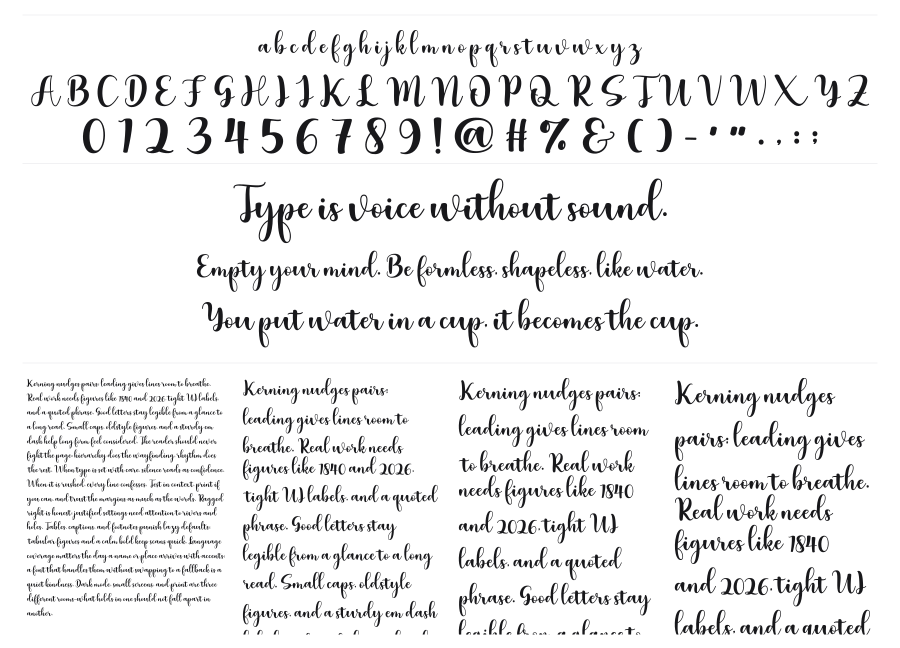 a b c d e f g h i j k l m n o p q r s t u v w x y z
A B C D E F G H I J K L M N O P Q R S T U V W X Y Z
0 1 2 3 4 5 6 7 8 9 ! @ # % & ( ) - ' " . , : ;
Type is voice without sound.
Empty your mind. Be formless, shapeless, like water.
You put water in a cup, it becomes the cup.
Kerning nudges pairs; leading gives lines room to breathe.
Real work needs figures like 1840 and 2026, tight UI labels,
and a quoted phrase. Good letters stay legible from a glance to
a long read. Small caps, oldstyle figures, and a sturdy em
dash help long form feel considered. The reader should never
fight the page: hierarchy does the wayfinding, rhythm does
the rest. When type is set with care, silence reads as confidence.
When it is rushed, every line confesses. Test in context, print if
you can, and trust the margins as much as the words. Ragged
right is honest; justified settings need attention to rivers and
holes. Tables, captions, and footnotes punish lazy defaults:
tabular figures and a calm bold keep scans quick. Language
coverage matters the day a name or place arrives with accents;
a font that handles them without swapping to a fallback is a
quiet kindness. Dark mode, small screens, and print are three
different rooms; what holds in one should not fall apart in
another.
Kerning nudges pairs;
leading gives lines room to
breathe. Real work needs
figures like 1840 and 2026,
tight UI labels, and a quoted
phrase. Good letters stay
legible from a glance to a long
read. Small caps, oldstyle
figures, and a sturdy em dash
Kerning nudges pairs;
leading gives lines room
to breathe. Real work
needs figures like 1840
and 2026, tight UI
labels, and a quoted
phrase. Good letters stay
legible from a glance to
Kerning nudges
pairs; leading gives
lines room to breathe.
Real work needs
figures like 1840
and 2026, tight UI
labels, and a quoted